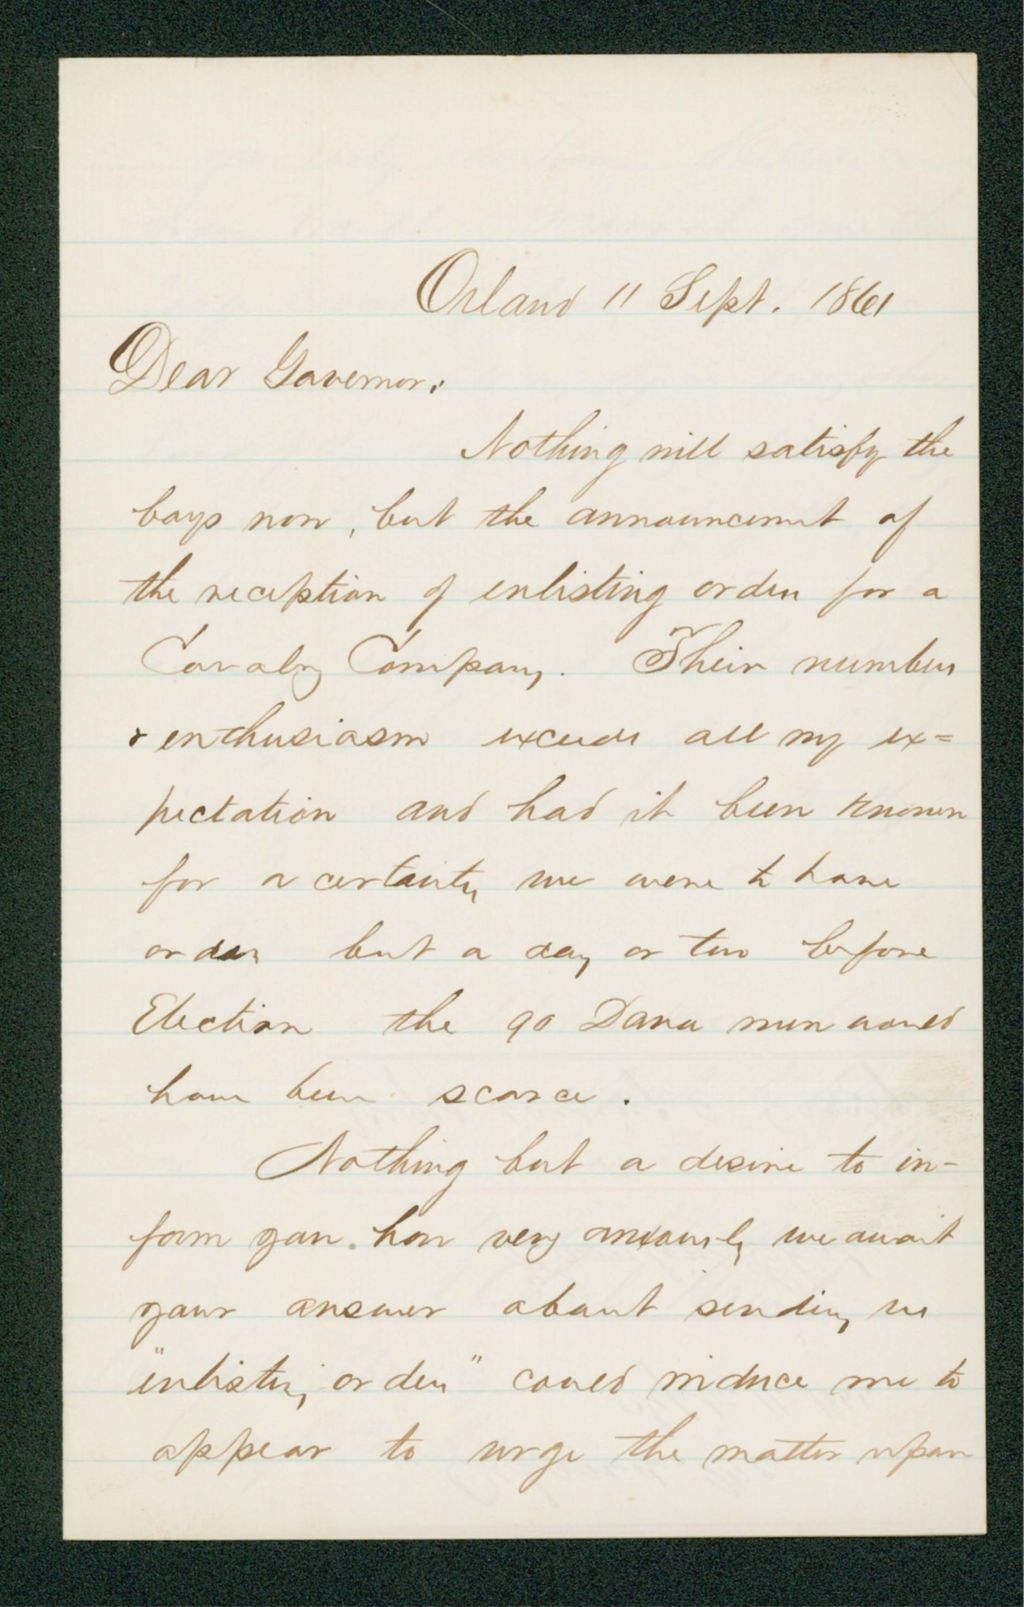 Orland 11 Sept. 1861
Dear Governor:
Nothing will satisfy the
boys now, but the announcement of
the reception of enlisting orders for a
Cavalry Company. Their numbers
& enthusiasm exceeds all my ex=
pectation and had it been known
for a certainty we were to have
orders but a day or two before
Election the 90 Dana men would
have been scarce.
Nothing but a desire to in-
form you how very anxiously we await
your answer about sending us
"enlisting orders" could induce me to
appear to urge the matter upon